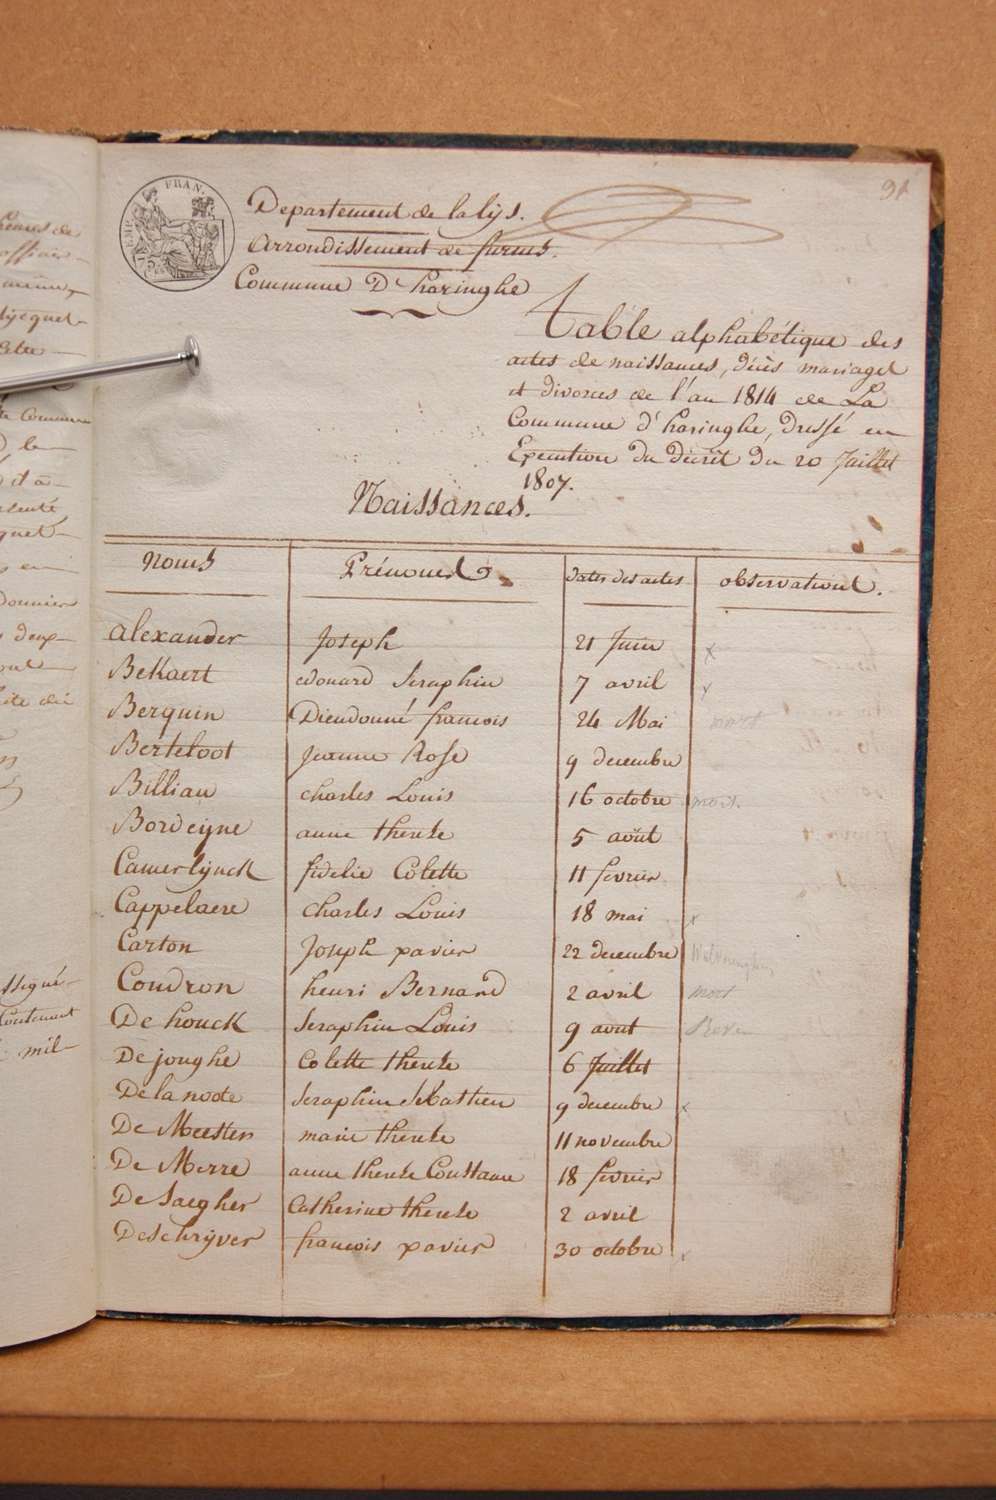 91
Departement de la lijs.
Arrondissement de furnes.
Commune D'haringhe
Table alphabétique des
actes de naissances, décès mariages
et divorces de l'an 1814 de La
Commune d'haringhe, dressé en
Execution du décret du 20 Juillet
1807.
Naissances.
Noms Prénoms Dates des actes observations.
alexander Joseph 21 Juin x
Bekaert edouard Seraphin 7 avril x
Berquin Dieudonné francois 24 Mai mort
Berteloot Jeanne Rose 9 decembre
Billiau charles Louis 16 octobre mort.
Bordeyne anne therese 5 août
Camerlynck fidelie Colette 11 fevrier
Cappelaere charles Louis 18 mai x
Carton Joseph xavier 22 decembre
Coudron henri Bernard 2 avril mort
De houck Seraphin Louis 9 aout
De jonghe Colette therese 6 Juillet
De la noote Seraphin Sebastien 9 decembre x
De Meester marie therese 11 novembre
De Merre anne therese Constance 18 fevrier
De Saegher Catherine therese 2 avril
Deschrijver francois xavier 30 octobre x